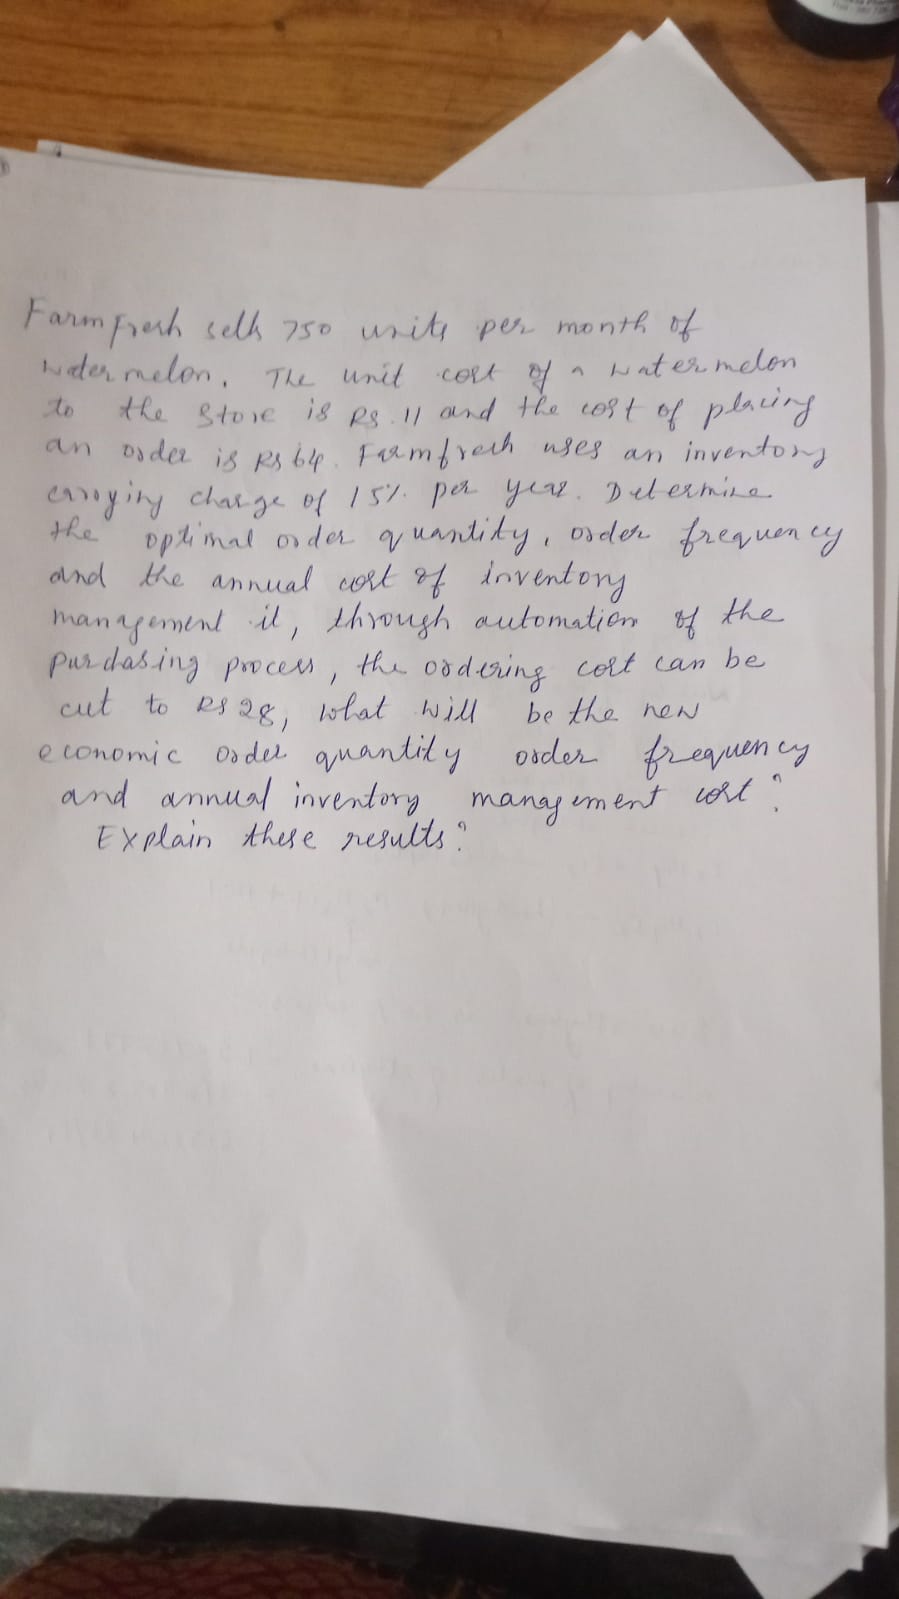 Farm fresh sells 750 units per month of
watermelon. The unit cost of a watermelon
to the store is RS.11 and the cost of placing
an order is RS 64. Farmfresh uses an inventory
carrying charge of 15% per year. Determine
the optimal order quantity, order frequency
and the annual cost of inventory
management it, through automation of the
purchasing process, the ordering cost can be
cut to RS 28, what will be the new
economic order quantity order frequency
and annual inventory management cost?
Explain these results?